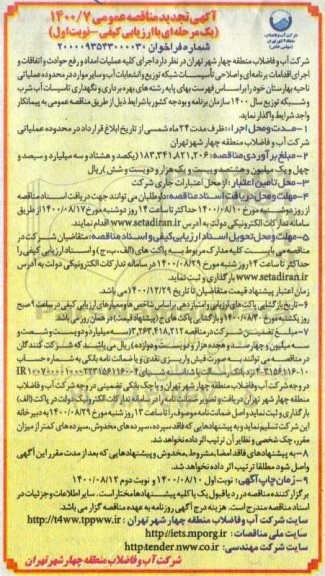 آگهی تجدید مناقصه عمومی ۱۴۰۰/۷
(یک مرحله‌ای با ارزیابی کیفی - نوبت اول)
شماره فراخوان ۲۰۰۰۰۹۳۵۳۳۰۰۰۰۳۰
شرکت آب و فاضلاب منطقه چهار شهر تهران در نظر دارد اجرای کلیه عملیات امداد و رفع حوادث و اتفاقات و
اجرای اقدامات برنامه‌ای و اصلاحی تأسیسات شبکه توزیع و انشعابات آب و سایر موارد در محدوده عملیاتی
ناحیه بهارستان خود را بر اساس فهرست بهای پایه رشته‌های بهره‌برداری و نگهداری تاسیسات آب شرب
و شبکه توزیع سال ۱۴۰۰ سازمان برنامه و بودجه کشور با شرایط ذیل از طریق مناقصه عمومی به پیمانکار
واجد شرایط واگذار نماید.
۱- مدت و محل اجرا: ظرف مدت ۲۴ ماه شمسی از تاریخ ابلاغ قرارداد در محدوده عملیاتی
شرکت آب و فاضلاب منطقه چهار شهر تهران
۲- مبلغ برآوردی مناقصه: ۱۸۳,۳۴۱,۸۲۱,۲۰۶ (یکصد و هشتاد و سه میلیارد و سیصد و
چهل و یک میلیون و هشتصد و بیست و یک هزار و دویست و شش) ریال
۳- محل تامین اعتبار: از محل اعتبارات جاری شرکت
۴- مهلت و محل دریافت اسناد مناقصه: داوطلبان می توانند جهت دریافت اسناد مناقصه
از روز دوشنبه مورخ ۱۴۰۰/۰۸/۱۰ حداکثر تا ساعت ۱۴ روز دوشنبه مورخ ۱۴۰۰/۰۸/۱۷ از طریق
سامانه تدارکات الکترونیکی دولت به آدرس www.setadiran.ir اقدام نمایند.
۵- مهلت و محل تحویل اسناد ارزیابی کیفی و اسناد مناقصه: متقاضیان شرکت در
مناقصه می بایست کلیه مدارک مربوط به پاکت های (الف، ب، ج) و اسناد ارزیابی کیفی را
حداکثر تا ساعت ۱۴ روز شنبه مورخ ۱۴۰۰/۰۸/۲۹ در سامانه تدارکات الکترونیکی دولت به آدرس
www.setadiran.ir بارگذاری و ثبت نماید.
زمان اعتبار پیشنهاد قیمت متقاضیان تا تاریخ ۱۴۰۰/۱۲/۲۹ می باشد.
۶- تاریخ بازگشایی پاکت های ارزیابی و امتیازدهی بر اساس شاخص ها و معیارهای ارزیابی کیفی در ساعت ۹ صبح
روز یکشنبه مورخ ۱۴۰۰/۰۸/۳۰ و بازگشایی پاکت های ج (پیشنهاد قیمت) در همان روز می باشد.
۷- مبلغ تضمین شرکت در مناقصه ۳,۲۶۳,۴۱۸,۲۱۲ (سه میلیارد و دویست و شصت و
سه میلیون و چهارصد و هجده هزار و دویست و دوازده) ریال می باشد، که شرکت کنندگان
در مناقصه می توانند به صورت فیش واریزی نقدی و یا ضمانت نامه بانکی به شماره حساب
در وجه شرکت آب و فاضلاب منطقه چهار شهر تهران و یا چک بانکی تضمینی در وجه شرکت آب و فاضلاب
منطقه چهار شهر تهران دریافت و تصویر ضمانت نامه را در سامانه تدارکات الکترونیک دولت در پاکت (الف)
بارگذاری و ثبت نماید و اصل ضمانت نامه موصوف را تا ساعت ۱۴ روز شنبه مورخ ۱۴۰۰/۰۸/۲۹ به دبیرخانه
این شرکت تسلیم نماید و به پیشنهادهایی که فاقد سپرده، سپرده های مخدوش، سپرده های کمتر از میزان
مقرر، چک شخصی و نظایر آن ترتیب اثر داده نخواهد شد.
۸- به پیشنهادهای فاقد امضا، مشروط، مخدوش و پیشنهادهایی که بعد از مدت مقرر این آگهی
واصل شود مطلقا ترتیب اثر داده نخواهد شد.
۹- زمان چاپ آگهی: نوبت اول ۱۴۰۰/۰۸/۱۰ و نوبت دوم ۱۴۰۰/۰۸/۱۲
برگزار کننده مناقصه در رد یا قبول یک یا کلیه پیشنهادها مختار است. سایر اطلاعات و جزئیات در
اسناد مناقصه مندرج است. هزینه درج آگهی روزنامه به عهده مناقصه گزار می باشد.
سایت شرکت آب و فاضلاب منطقه چهار شهر تهران: http://t4ww.tppww.ir
سایت ملی مناقصات: http://iets.mporg.ir
سایت شرکت مهندسی: http:tender.nww.co.ir
شرکت آب و فاضلاب منطقه چهار شهر تهران